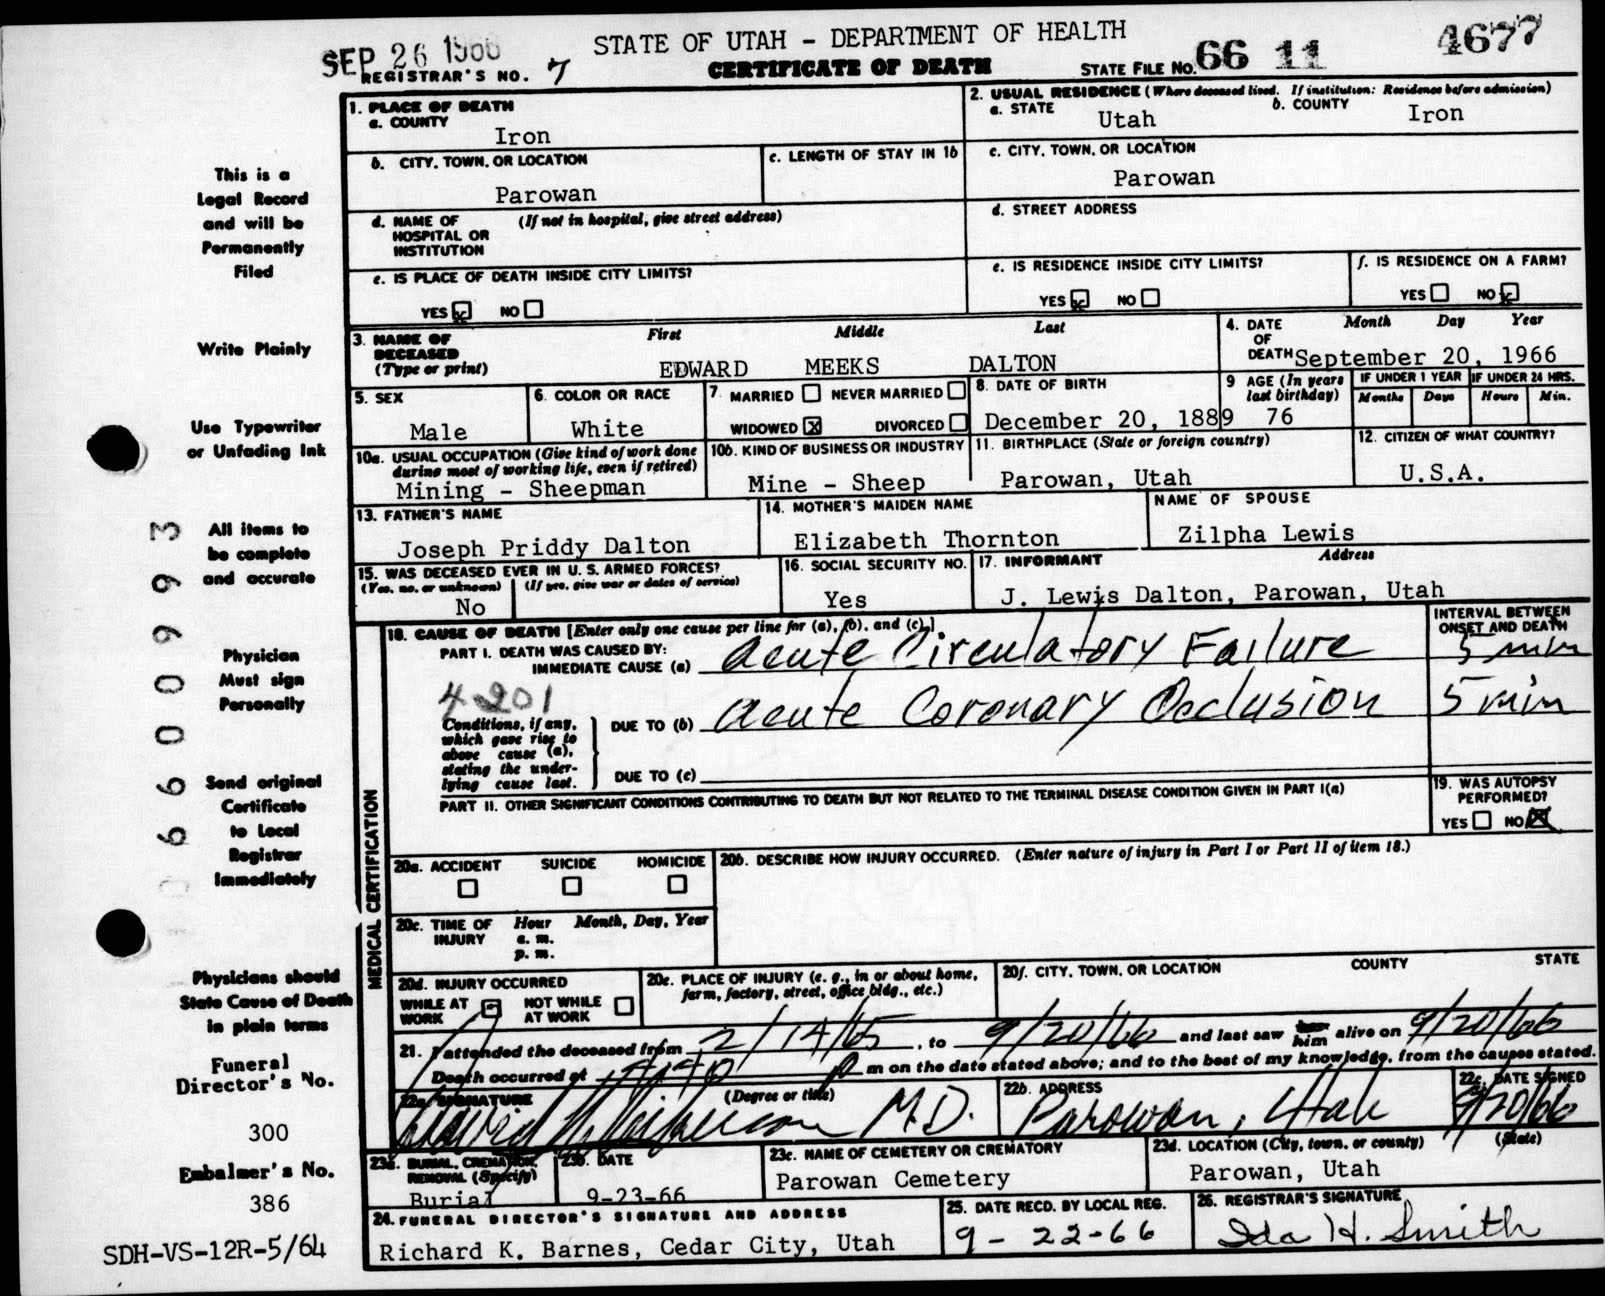 SEP 26 1966
STATE OF UTAH - DEPARTMENT OF HEALTH
4677
REGISTRAR'S NO. 7
CERTIFICATE OF DEATH
STATE FILE NO. 66 11
This is a
Legal Record
and will be
Permanently
Filed
Write Plainly
Use Typewriter
or Unfading Ink
All items to
be complete
and accurate
Physician
Must sign
Personally
Send original
Certificate
to Local
Registrar
Immediately
Physicians should
State Cause of Death
in plain terms
Funeral
Director's No.
300
Embalmer's No.
386
SDH-VS-12R-5/64
0660093
1. PLACE OF DEATH
a. COUNTY
Iron
2. USUAL RESIDENCE (Where deceased lived. If institution: Residence before admission)
a. STATE Utah b. COUNTY Iron
b. CITY, TOWN, OR LOCATION
Parowan
c. LENGTH OF STAY IN 1b
c. CITY, TOWN, OR LOCATION
Parowan
d. NAME OF HOSPITAL OR INSTITUTION (If not in hospital, give street address)
d. STREET ADDRESS
e. IS PLACE OF DEATH INSIDE CITY LIMITS?
YES x NO
e. IS RESIDENCE INSIDE CITY LIMITS?
YES x NO
f. IS RESIDENCE ON A FARM?
YES NO x
3. NAME OF DECEASED (Type or print)
First Middle Last
EDWARD MEEKS DALTON
4. DATE OF DEATH Month Day Year
September 20, 1966
5. SEX
Male
6. COLOR OR RACE
White
7. MARRIED NEVER MARRIED
WIDOWED X DIVORCED
8. DATE OF BIRTH
December 20, 1889
9 AGE (In years last birthday)
76
IF UNDER 1 YEAR
Months Days
IF UNDER 24 HRS.
Hours Min.
10a. USUAL OCCUPATION (Give kind of work done
during most of working life, even if retired)
Mining - Sheepman
10b. KIND OF BUSINESS OR INDUSTRY
Mine - Sheep
11. BIRTHPLACE (State or foreign country)
Parowan, Utah
12. CITIZEN OF WHAT COUNTRY?
U.S.A.
13. FATHER'S NAME
Joseph Priddy Dalton
14. MOTHER'S MAIDEN NAME
Elizabeth Thornton
NAME OF SPOUSE
Zilpha Lewis
15. WAS DECEASED EVER IN U. S. ARMED FORCES?
(Yes, no, or unknown) (If yes, give war or dates of service)
No
16. SOCIAL SECURITY NO.
Yes
17. INFORMANT Address
J. Lewis Dalton, Parowan, Utah
MEDICAL CERTIFICATION
18. CAUSE OF DEATH [Enter only one cause per line for (a), (b), and (c).]
INTERVAL BETWEEN
ONSET AND DEATH
PART I. DEATH WAS CAUSED BY:
IMMEDIATE CAUSE (a) Acute Circulatory Failure 5 min
4201
Conditions, if any,
which gave rise to
above cause (a),
stating the under-
lying cause last.
DUE TO (b) Acute Coronary Occlusion 5 min
DUE TO (c)
PART II. OTHER SIGNIFICANT CONDITIONS CONTRIBUTING TO DEATH BUT NOT RELATED TO THE TERMINAL DISEASE CONDITION GIVEN IN PART I(a)
19. WAS AUTOPSY
PERFORMED?
YES NO X
20a. ACCIDENT SUICIDE HOMICIDE
20b. DESCRIBE HOW INJURY OCCURRED. (Enter nature of injury in Part I or Part II of item 18.)
20c. TIME OF INJURY Hour Month, Day, Year
a. m.
p. m.
20d. INJURY OCCURRED
WHILE AT WORK NOT WHILE AT WORK
20e. PLACE OF INJURY (e. g., in or about home,
farm, factory, street, office bldg., etc.)
20f. CITY, TOWN, OR LOCATION COUNTY STATE
21. I attended the deceased from 2/14/65, to 9/20/66 and last saw her him alive on 9/20/66
Death occurred at p m on the date stated above; and to the best of my knowledge, from the causes stated.
22a. SIGNATURE (Degree or title)
M.D.
22b. ADDRESS
Parowan, Utah
22c. DATE SIGNED
9/20/66
23a. BURIAL, CREMATION, REMOVAL (Specify)
Burial
23b. DATE
9-23-66
23c. NAME OF CEMETERY OR CREMATORY
Parowan Cemetery
23d. LOCATION (City, town, or county) (State)
Parowan, Utah
24. FUNERAL DIRECTOR'S SIGNATURE AND ADDRESS
Richard K. Barnes, Cedar City, Utah
25. DATE RECD. BY LOCAL REG.
9-22-66
26. REGISTRAR'S SIGNATURE
Ida H. Smith